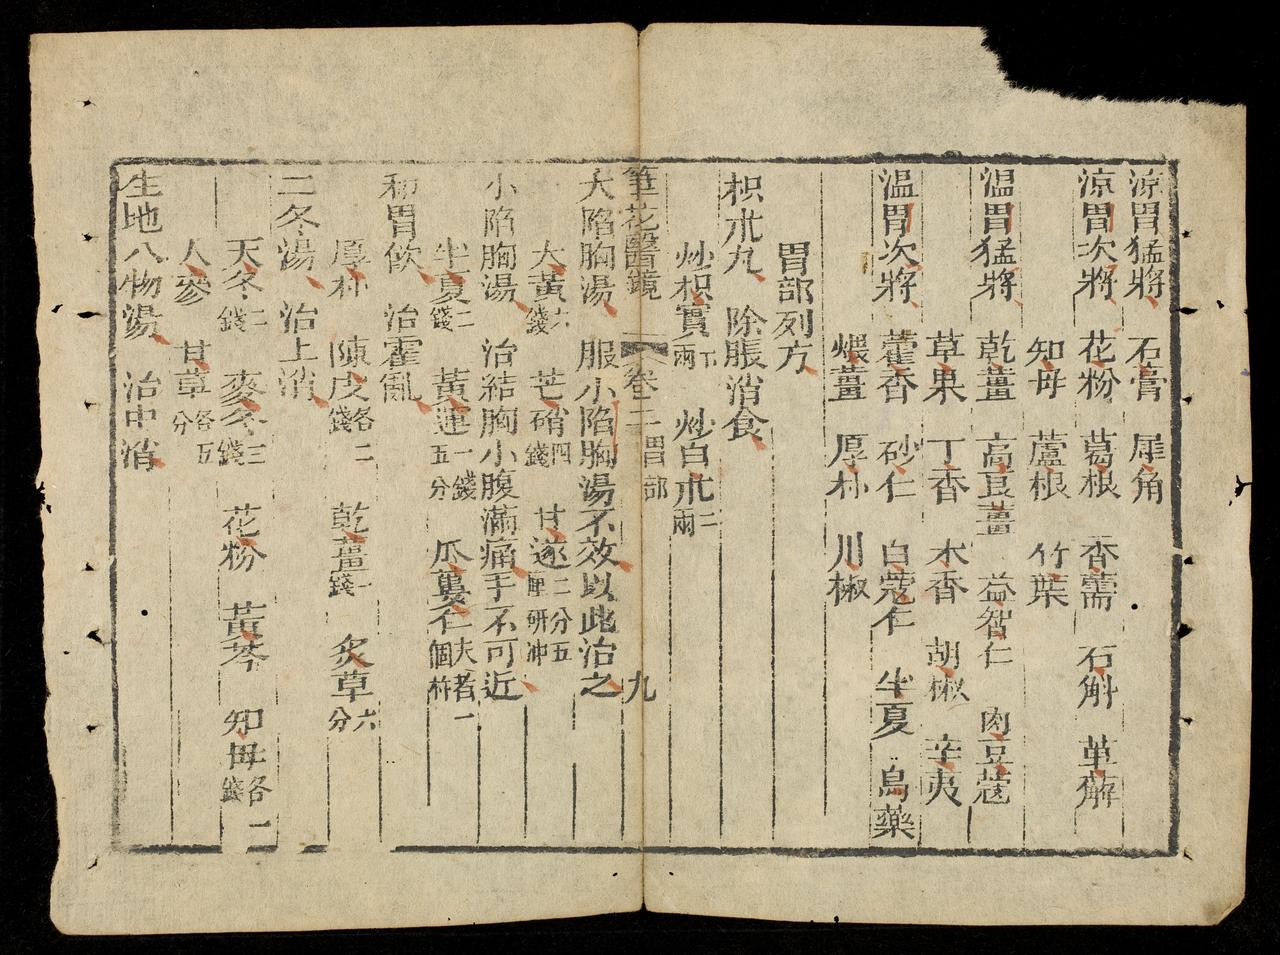 涼胃猛將 石膏 犀角
涼胃次將 花粉 葛根 香薷 石斛 萆薢
知母 蘆根 竹葉
温胃猛將 乾薑 高良薑 益智仁 肉豆蔻
草果 丁香 木香 胡椒 辛夷
温胃次將 藿香 砂仁 白蔻仁 半夏 烏藥
煨薑 厚朴 川椒
胃部列方
枳朮丸 除脹消食
炒枳實一兩 炒白朮二兩
筆花醫鏡 卷二 胃部 九
大陷胸湯 服小陷胸湯不效以此治之
大黃六錢 芒硝四錢 甘遂二分五厘研冲
小陷胸湯 治結胸小腹滿痛手不可近
半夏二錢 黃連一錢五分 瓜蔞仁大者一個杵
和胃飲 治霍亂
厚朴 陳皮各二錢 乾薑一錢 炙草六分
二冬湯 治上消
天冬二錢 麥冬三錢 花粉 黃芩 知母各一錢
人參 甘草各五分
生地八物湯 治中消